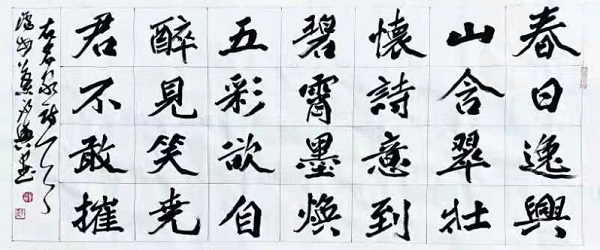 春日逸興
山含翠壯
懷詩意到
碧霄墨煥
五彩欲自
醉見笑堯
君不敢摧